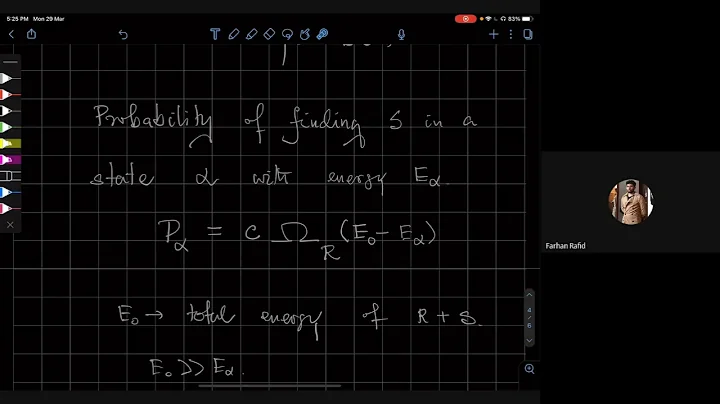 5:25 PM Mon 29 Mar
83%
Probability of finding S in a
state α with energy Eα.
Pα = C Ω_R (E₀ - Eα)
E₀ → total energy of R + S.
E₀ >> Eα.
4
6
Farhan Rafid